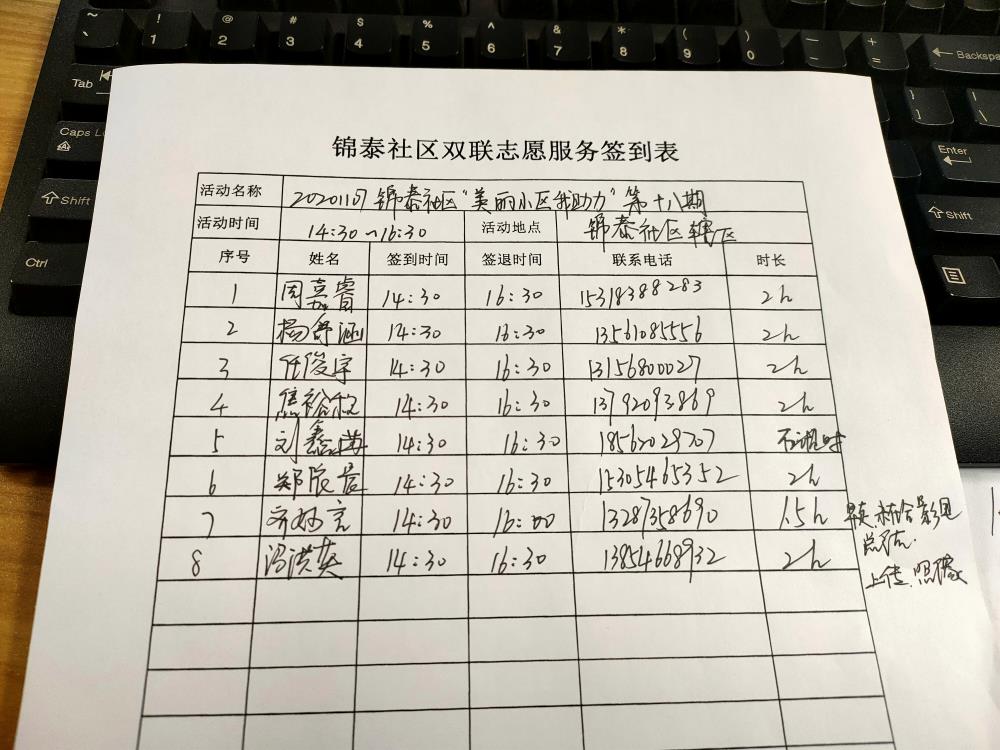 ~ `
! 1
@ 2
# 3
$ 4
% 5
^ 6
& 7
* 8
( 9
) 0
— -
+ =
← Backspa
Tab
} ]
Caps L
Enter
Shift
Shift
Ctrl
锦泰社区双联志愿服务签到表
活动名称 20201107 锦泰社区“美丽小区我助力”第十八期
活动时间 14:30~16:30 活动地点 锦泰社区辖区
序号 姓名 签到时间 签退时间 联系电话 时长
1 周嘉睿 14:30 16:30 15318388283 2h
2 杨舒涵 14:30 16:30 13561085556 2h
3 任俊宇 14:30 16:30 13156800027 2h
4 焦裕 14:30 16:30 13792093869 2h
5 刘鑫 14:30 16:30 18562029707 不计时
6 郑辰 14:30 16:30 15305465352 2h
7 齐妙言 14:30 16:00 13287358690 1.5h
8 冯洪英 14:30 16:30 13854668932 2h
上传.照像